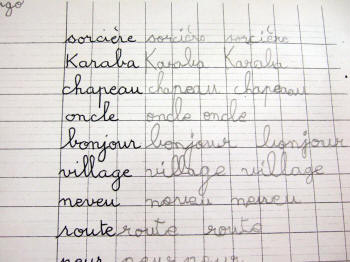 sorcière sorcière sorcière
Karaba Karaba Karaba
chapeau chapeau chapeau
oncle oncle oncle
bonjour bonjour bonjour
village village village
neveu neveu neveu
route route route